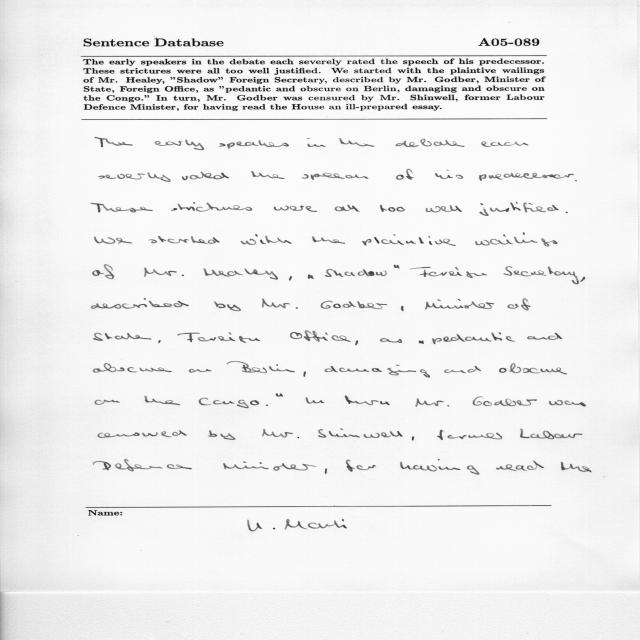 Sentence Database A05-089
The early speakers in the debate each severely rated the speech of his predecessor.
These strictures were all too well justified. We started with the plaintive wailings
of Mr. Healey, "Shadow" Foreign Secretary, described by Mr. Godber, Minister of
State, Foreign Office, as "pedantic and obscure on Berlin, damaging and obscure on
the Congo." In turn, Mr. Godber was censured by Mr. Shinwell, former Labour
Defence Minister, for having read the House an ill-prepared essay.
The early speakers in the debate each
severely rated the speech of his predecessor.
These strictures were all too well justified.
We started with the plaintive wailings
of Mr. Healey, „Shadow" Foreign Secretary,
described by Mr. Godber, Minister of
State, Foreign Office, as „pedantic and
obscure on Berlin, damaging and obscure
on the Congo." In turn Mr. Godber was
censured by Mr. Shinwell, former Labour
Defence Minister, for having read the
Name:
U. Marti